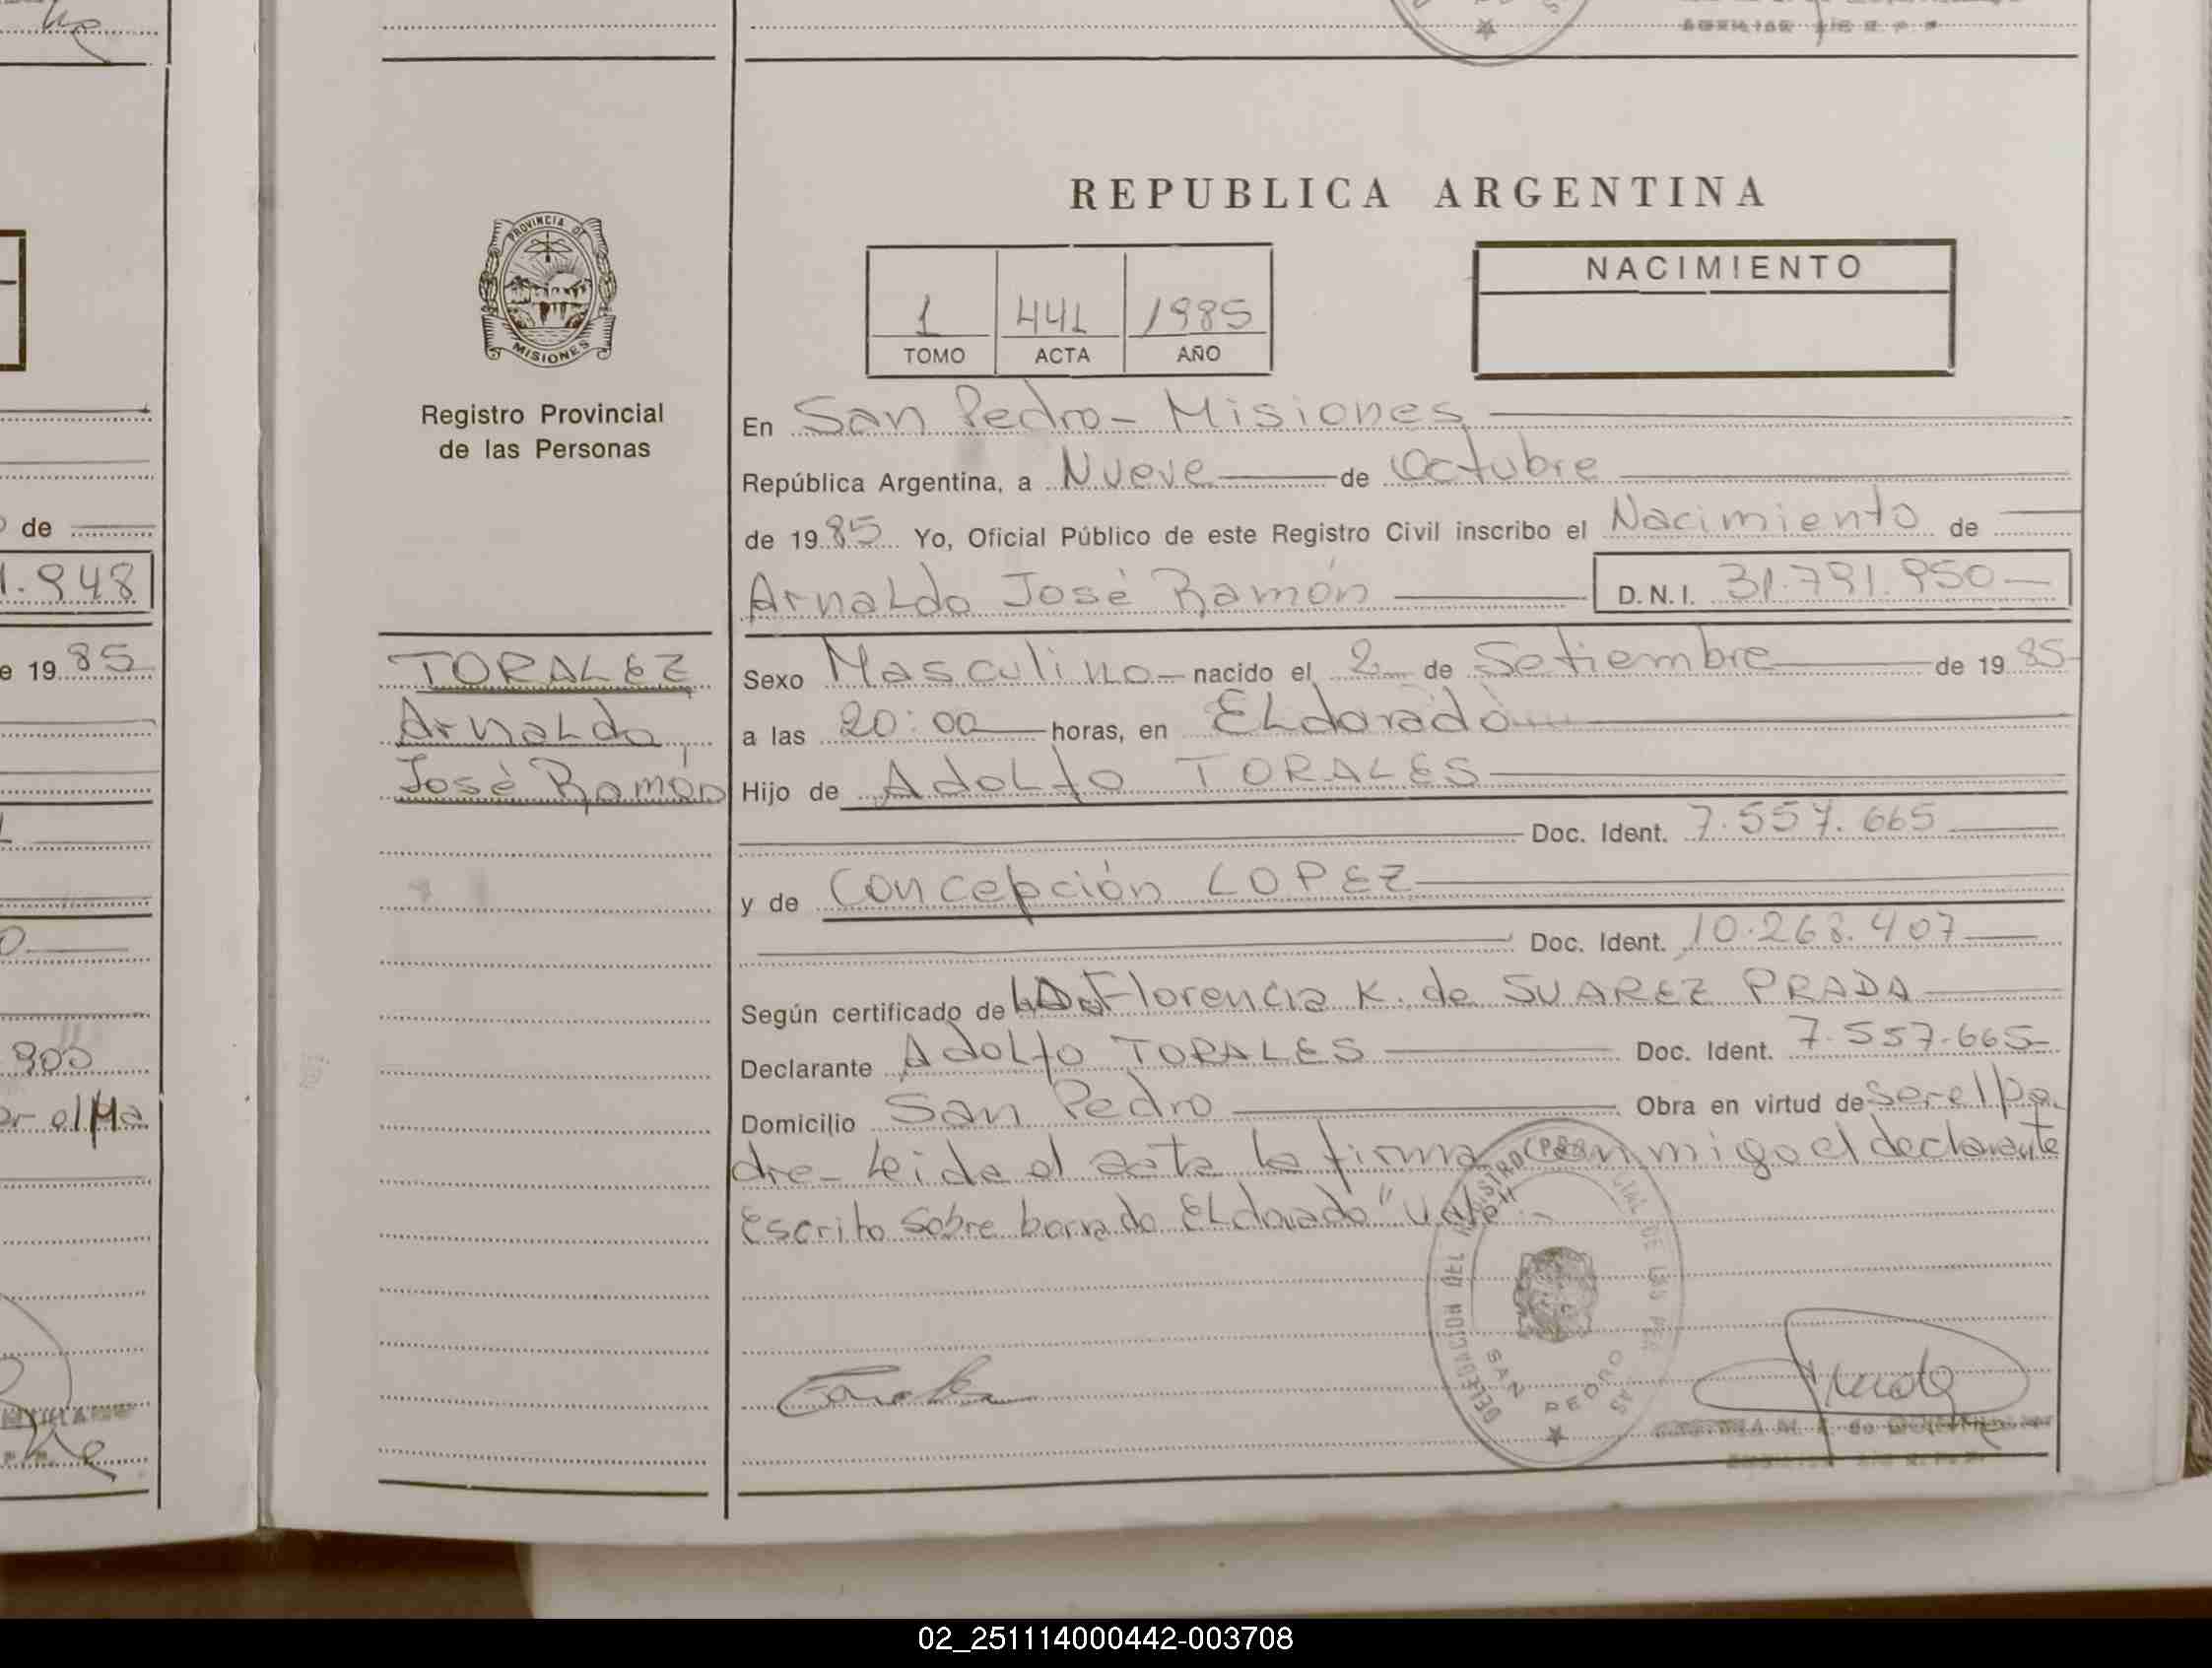 REPUBLICA ARGENTINA
PROVINCIA DE
MISIONES
Registro Provincial
de las Personas
1 441 1985
TOMO ACTA AÑO
NACIMIENTO
En San Pedro - Misiones
República Argentina, a Nueve de Octubre
de 1985 Yo, Oficial Público de este Registro Civil inscribo el Nacimiento de
Arnaldo José Ramón D.N.I. 31.791.950
TORALEZ
Arnaldo
José Ramón
Sexo Masculino nacido el 2 de Setiembre de 1985
a las 20:00 horas, en ELdorado
Hijo de Adolfo TORALES
Doc. Ident. 7.557.665
y de Concepción LOPEZ
Doc. Ident. 10.268.407
Según certificado de Florencia K. de SUAREZ PRADA
Declarante Adolfo TORALES Doc. Ident. 7.557.665
Domicilio San Pedro Obra en virtud de ser el pa
dre - Leida el acta la firma con migo el declarante
Escrito sobre borrado ELdorado "Vale" -
DELEGACION DEL REGISTRO PROVINCIAL DE LAS PERSONAS
SAN PEDRO
de
1.948
e 1985
900
or el Ma
02_251114000442-003708